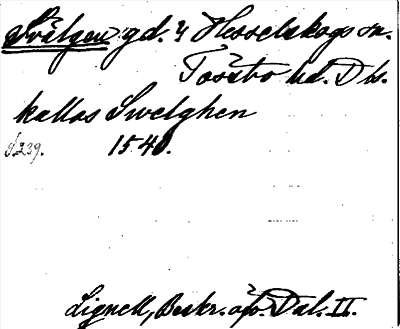 Svälgen gd. i Hesselskogs sn.
Tössbo hd. Dls.
kallas Swelghen
s. 239. 1540.
Lignell, Beskr. öfv. Dal. II.